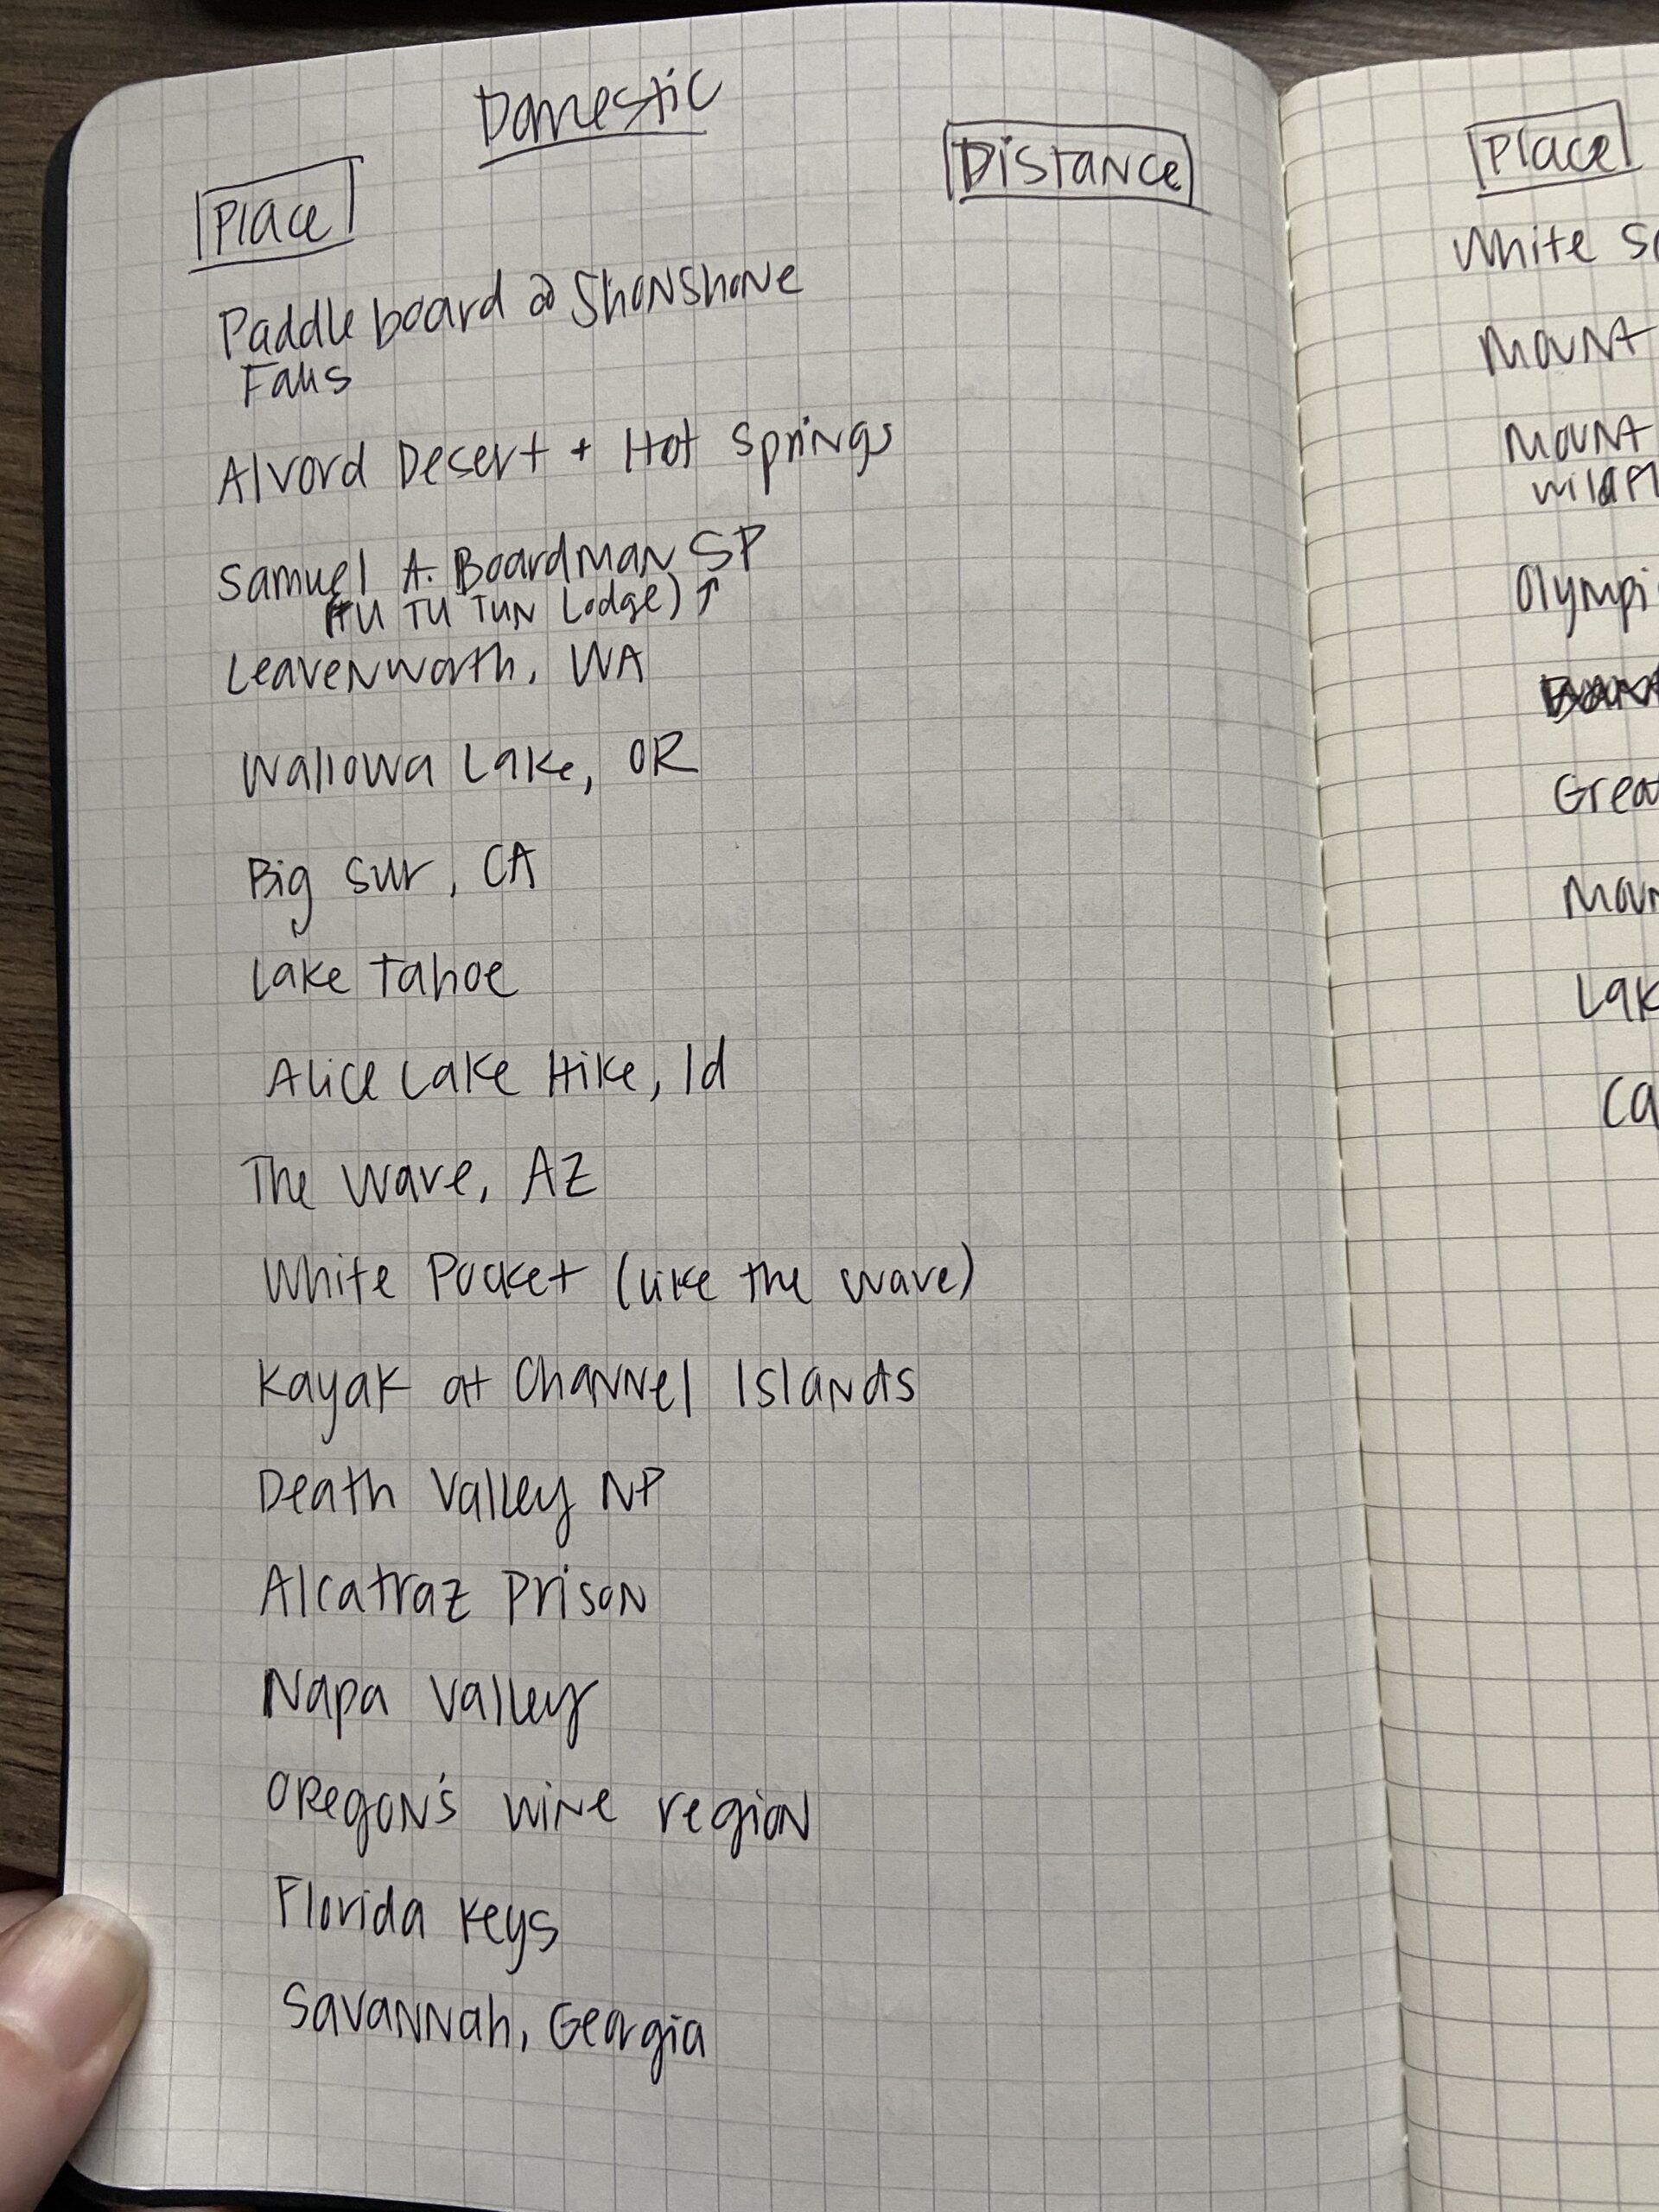 Domestic
Place
Distance
Paddle board @ Shonshone
Falls
Alvord Desert + Hot Springs
Samuel A. Boardman SP
(TU TU TUN Lodge) ↑
Leavenworth, WA
Wallowa Lake, OR
Big Sur, CA
Lake Tahoe
Alice Lake Hike, Id
The Wave, AZ
White Pocket (like the wave)
Kayak at Channel Islands
Death Valley NP
Alcatraz Prison
Napa Valley
Oregon's wine region
Florida Keys
Savannah, Georgia
Place
White
Mount
Mount
Great